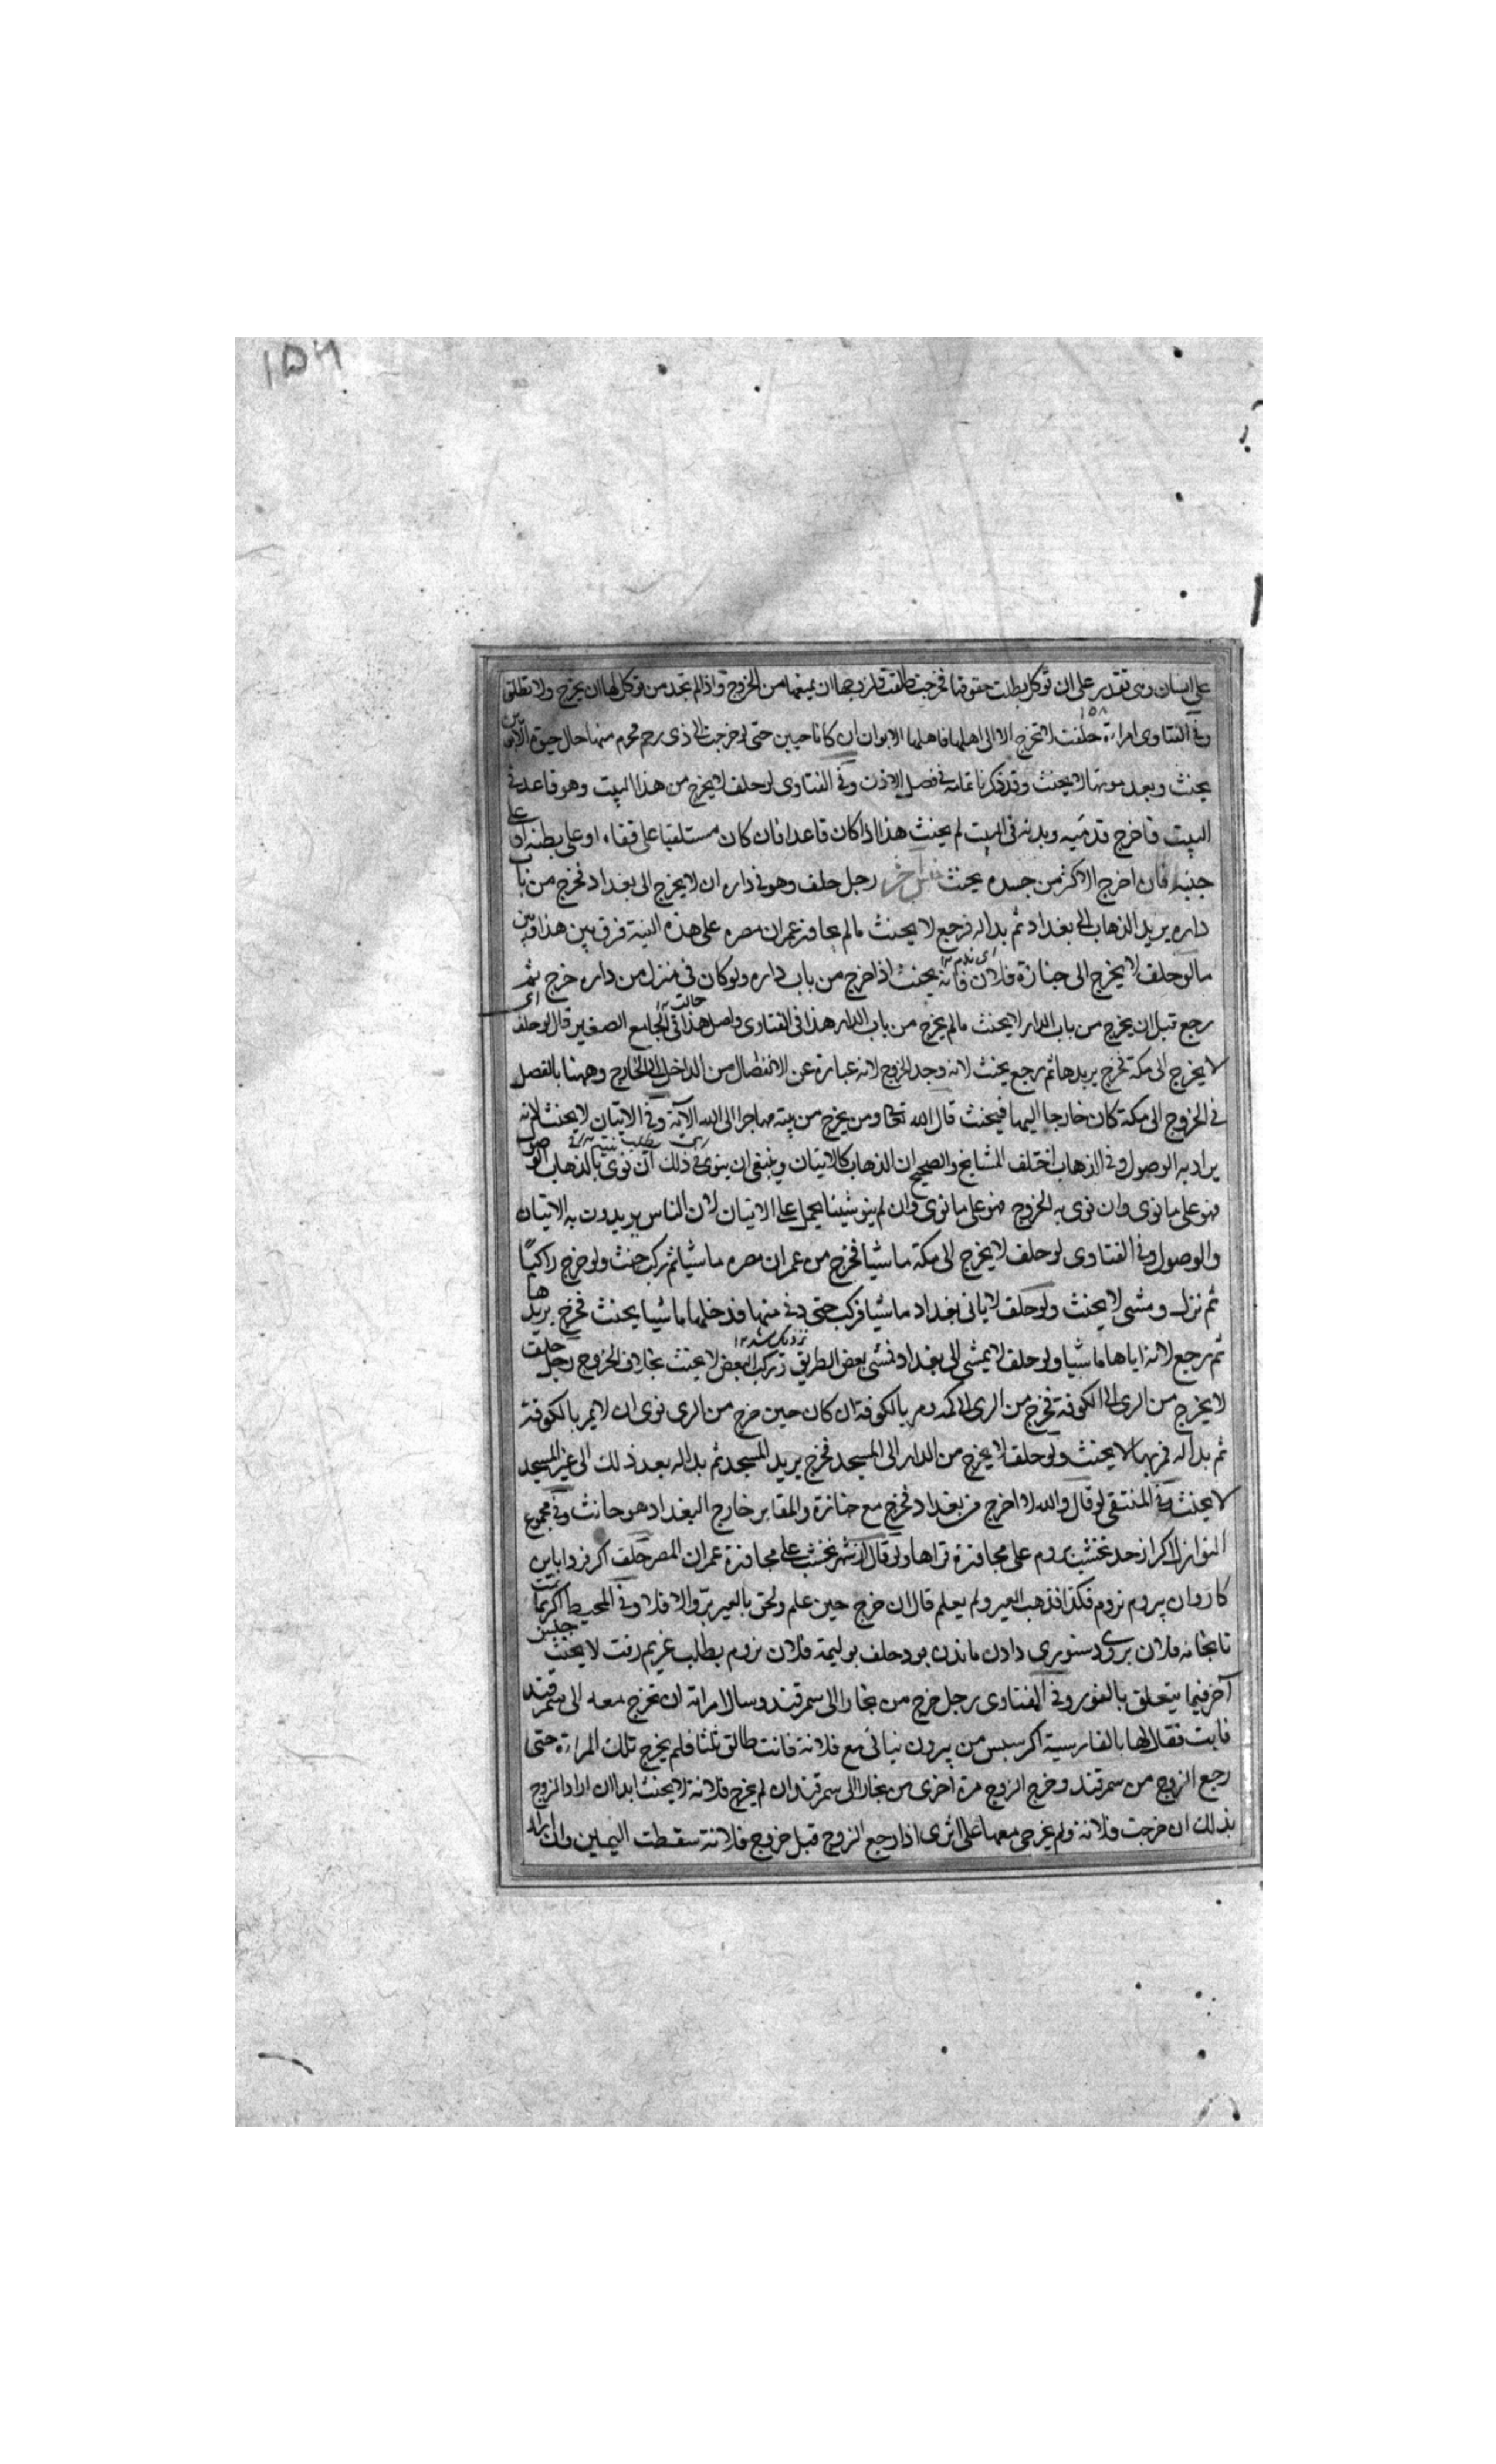 على انسان وهى تقدر على ان توكل بطلت حقوقها فخرجت طلقت فلزوجها ان يمنعها من الخروج واذا لم تجد من توكل لها ان يخرج ولا تطلق
وفى الفتاوى امراءة حلفت لا تخرج الا الى اهلها فاهلها الابوان ان كانا حيين حتى لو خرجت الى ذى رحم محرم منها حال حيوة الابوين
يحنث وبعد موتهما لا يحنث وقد ذكرنا تمامه فى فصل الاذن وفى الفتاوى لو حلف لا يخرج من هذا البيت وهو قاعد فى
البيت فاخرج قدميه وبدنه فى البيت لم يحنث هذا اذا كان قاعدا فان كان مستلقيا على قفاه او على بطنه او على
جنبه فان اخرج الاكثر من جسده يحنث جنس آخر رجل حلف وهو فى داره ان لا يخرج الى بغداد فخرج من باب
داره يريد الذهاب الى بغداد ثم بدا له فرجع لا يحنث مالم يجاوز عمران مصره على هذه النية فرق بين هذا وبين
ما لو حلف لا يخرج الى جنازة فلان فانه يحنث اذا خرج من باب داره ولو كان فى منزل من داره خرج ثم
رجع قبل ان يخرج من باب الدار لا يحنث مالم يخرج من باب الدار هذا فى الفتاوى واصل هذا فى الجامع الصغير قال لو حلف
لا يخرج الى مكة فخرج يريدها ثم رجع يحنث لانه وجد الخروج لانه عبارة عن الانفصال من الداخل الى الخارج وههنا بالفصل
فى الخروج الى مكة كان خارجا اليها فيحنث قال الله تعالى ومن يخرج من بيته مهاجرا الى الله الآية وفى الاتيان لا يحنث لانه
يراد به الوصول وفى الذهاب اختلف المشايخ والصحيح ان الذهاب كالاتيان وينبغى ان ينوى فى ذلك ان نوى بالذهاب الوصول
فهو على ما نوى وان نوى به الخروج فهو على ما نوى وان لم ينو شيئا يحمل على الاتيان لان الناس يريدون به الاتيان
والوصول وفى الفتاوى لو حلف لا يخرج الى مكة ماشيا فخرج من عمران مصره ماشيا ثم ركب حنث ولو خرج راكبًا
ثم نزل ومشى لا يحنث ولو حلف لا ياتى بغداد ماشيا فركب حتى دنى منها فدخلها ماشيا يحنث فخرج يريدها
ثم رجع لانه اتاها ماشيا ولو حلف لا يمشى الى بغداد فمشى بعض الطريق وركب البعض لا يحنث بخلاف الخروج رجل حلف
لا يخرج من الرى الى الكوفة فخرج من الرى الى مكة ومر بالكوفة ان كان حين خرج من الرى نوى ان لا يمر بالكوفة
ثم بدا له فمر بها لا يحنث ولو حلف لا يخرج من الدار الى المسجد فخرج يريد المسجد ثم بدا له بعد ذلك الى غير المسجد
لا يحنث وفى المنتقى لو قال والله لا اخرج من بغداد فخرج مع جنازة والمقابر خارج البغداد هو حانث وفى مجموع
النوازل اكر از حد نخشب بروم على مجاوزة قراها ولو قال از شهر نخشب على مجاوزة عمران المصر حلف اكر فردا باين
كاروان بيروم نروم فكذا فذهب العير ولم يعلم قال ان خرج حين علم ولحق بالعير برّ والا فلا وفى المحيط
تا بخانه فلان بروى دستورى دادن ماندن بود حلف بوليمة فلان نروم بطلب غريم رفت لا يحنث جنس
آخر فيما يتعلق بالفور وفى الفتاوى رجل خرج من بخارا الى سمرقند وسال امراته ان تخرج معه الى سمرقند
فابت فقال لها بالفارسية اكر سبس من بيرون نيائى مع فلانة فانت طالق ثلثا فلم يخرج تلك المراءة حتى
رجع الزوج من سمرقند وخرج الزوج مرة اخرى من بخارا الى سمرقند وان لم يخرج فلانة لا يحنث ابدا ان اراد الزوج
بذلك ان خرجت فلانة ولم تخرجى معها على اثرى اذا رجع الزوج قبل خروج فلانة سقطت اليمين وان اراد